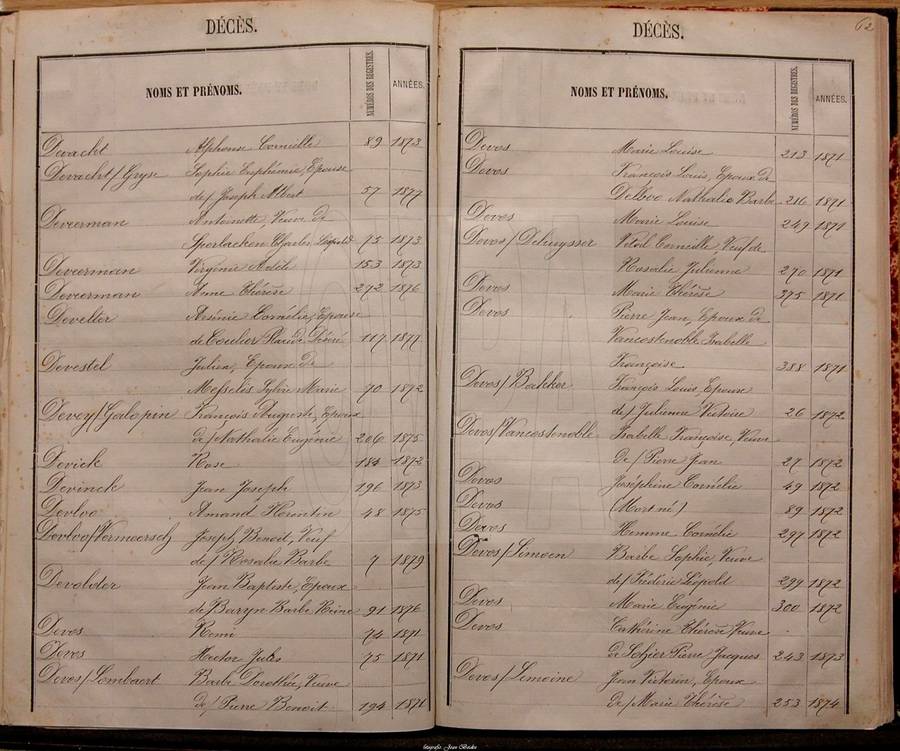 DÉCÈS.
NOMS ET PRÉNOMS. NUMÉROS DES REGISTRES. ANNÉES.
Devacht Alphonse Corneille 89 1873
Devacht/Gryse Sophie Euphémie, Epouse
de/ Joseph Albert 57 1877
Deveerman Antoinette Veuve de
Charles Léopold 75 1873
Deveerman Virginie Adèle 153 1873
Deveerman Anne Thérèse 272 1876
Develter Arsénie Cornélie, Epouse
de 117 1877
Devestel Julien, Epoux de
Sylvie Marie 70 1872
Devey/Galopin François Auguste, Epoux
de/ Nathalie Eugénie 206 1875
Devick Rose 184 1872
Devinck Jean Joseph 196 1873
Devloo Amand Florentin 48 1875
Devloo/Vermeersch Joseph Benoit, Veuf
de/ Rosalie Barbe 7 1879
Devolder Jean Baptiste, Epoux
de Baryn Barbe Reine 91 1876
Devos Remi 74 1871
Devos Hector Jules 75 1871
Devos/Lombaert Barbe Dorothée, Veuve
de/ Pierre Benoit 194 1871
DÉCÈS.
62
NOMS ET PRÉNOMS. NUMÉROS DES REGISTRES. ANNÉES.
Devos Marie Louise 213 1871
Devos François Louis, Epoux de
Delboo Nathalie Barbe 216 1871
Devos Marie Louise 249 1871
Devos/Dehuysser Vital Corneille, Veuf de
Rosalie Julienne 270 1871
Devos Marie Thérèse 375 1871
Devos Pierre Jean, Epoux de
Vancostenoble Isabelle
Françoise 388 1871
Devos/Bakker François Louis, Epoux
de/ Julienne Victoire 26 1872
Devos/Vancostenoble Isabelle Françoise, Veuve
De/ Pierre Jean 27 1872
Devos Joséphine Cornélie 49 1872
Devos (Mort né) 89 1872
Devos Hemme Cornélie 297 1872
Devos/Simoen Barbe Sophie, Veuve
de/ Fréderic Léopold 299 1872
Devos Marie Eugénie 300 1872
Devos Cathérine Thérèse Veuve
de Pierre Jacques 243 1873
Devos/Lemoine Jean Victorin, Epoux
de/ Marie Thérèse 253 1874
fotografie Jean Bockx